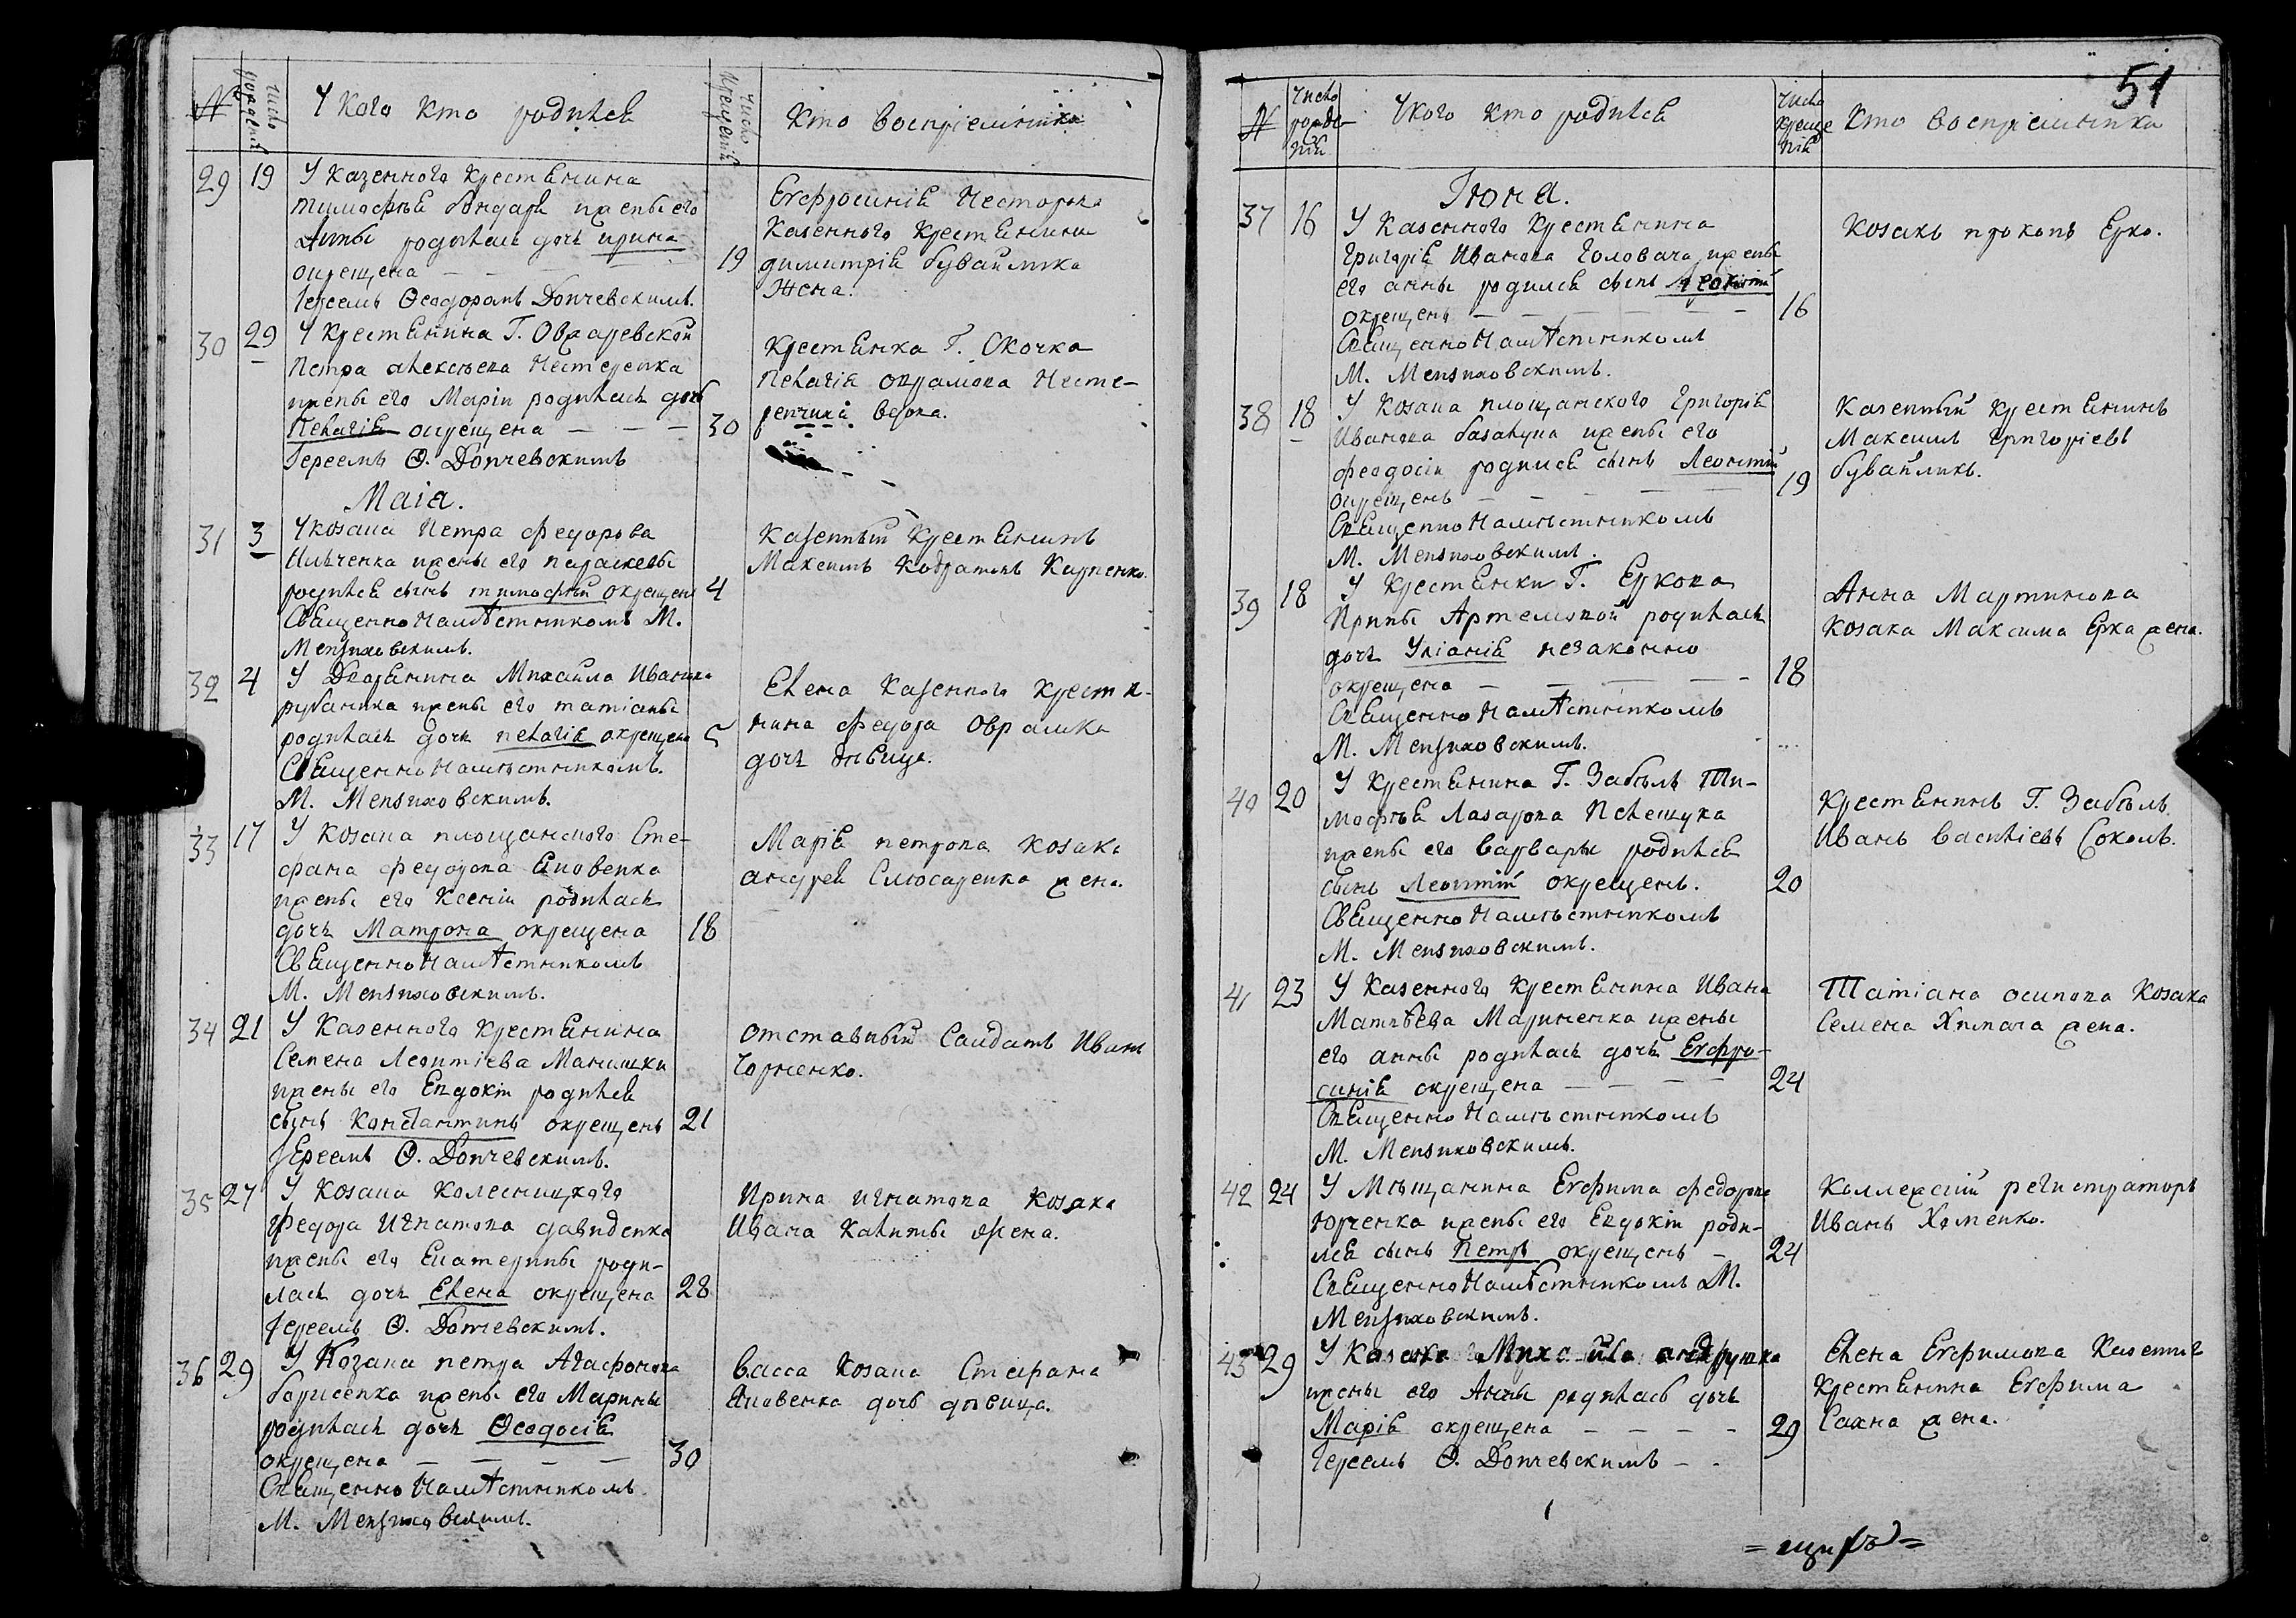 №
число рожденій
У кого кто родился
число крещеній
Кто восприемники
29 19 У казеннаго крестьянина
Тимофея Бндаря жены его
Анны родилась дочь Ирина
окрещена — — — — 19
Іереем Ѳеодором Дончевским.
Евфросиния Несторова
казенного крестьянина
Димитрія Бувайлика
жена.
30 29 У крестьянина Г. Овжаревской
Петра Алексеева Нестеренка
жены его Маріи родилась дочь
Пелагія окрещена — — — 30
Іереемъ Ѳ. Дончевскимъ
крестьянка Г. Скочка
Пелагія Овра­мова Несте-
ренчика вдова.
Маіа.
31 3 У козака Петра Федорова
Ильченка жены его Параскевы
родился сынъ Тимофѣй окрещенъ 4
Священно Намѣстникомъ М.
Мензиховскимъ.
Казенный крестьянинъ
Максимъ Кодратовъ Карпенко.
32 4 У Дворянина Михайла Иванова
Рубаника жены его Татіаны
родилась дочь Пелагія окрещена 5
Священно Намѣстникомъ.
М. Мензиховскимъ.
Елена казенного крестья-
нина Федора Оврамка
дочь дѣвица.
33 17 У козака площанского Сте-
фана Федорова Яновенка
жены его Ксеніи родилась
дочь Матрона окрещена 18
Священно Намѣстникомъ
М. Мензиховскимъ.
Марія Петрова козака
Андрея Слюсаренка жена.
34 21 У казенного крестьянина
Семена Леонтіева Манишки
жены его Евдокіи родился
сынъ Константинъ окрещенъ 21
Іереемъ Ѳ. Дончевскимъ.
отставный Салдатъ Иванъ
Чорненко.
35 27 У козака Колесницкого
Федора Игнатова Давиденка
жены его Екатерины роди-
лась дочь Елена окрещена 28
Іереемъ Ѳ. Дончевскимъ.
Ирина Игнатова козака
Ивана Калиты жена.
36 29 У Козака Петра Агафонова
Борисенка жены его Марины
родилась дочь Ѳеодосія
окрещена — — — — 30
Священно Намѣстникомъ
М. Мензиховскимъ.
Васса козака Стефана
Яновенка дочь дѣвица.
51
№
число рожденій
У кого кто родился
число крещеній
Кто восприемники
Іюна.
37 16 У Казенного Крестьянина
Григорія Иванова Головача жены
его Анны родился сынъ Леонтій
окрещенъ — — — — — 16
Священно Намѣстникомъ
М. Мензиховскимъ.
Козакъ Прокопъ Ерко.
38 18 У козака площанского Григорія
Иванова Базалука жены его
Феодосіи родился сынъ Леонтій
окрещенъ — — — — — 19
Священно Намѣстникомъ
М. Мензиховскимъ.
Казенный крестьянинъ
Максимъ Григоріевъ
Бувайликъ.
39 18 У Крестьянки Г. Еркова
Ирины Артемовой родилась
дочь Уліанія незаконно
окрещена — — — — 18
Священно Намѣстникомъ
М. Мензиховскимъ.
Анна Мартинова
козака Максима Ерка жена.
40 20 У крестьянина Г. Забѣлъ Ти-
мофѣя Лазарова Пелешука
жены его Варвары родился
сынъ Леонтій окрещенъ. 20
Священно Намѣстникомъ
М. Мензиховскимъ.
Крестьянинъ Г. Забѣлъ
Иванъ Василіевъ Соколъ.
41 23 У казенного крестьянина Ивана
Матвѣева Мариненка жены
его Анны родилась дочь Евфро-
синія окрещена — — — — 24
Священно Намѣстникомъ
М. Мензиховскимъ.
Татіана Осипова Козака
Семена Химича жена.
42 24 У Мѣщанина Евфима Федорова
Юрченка жены его Евдокіи роди-
лся сынъ Петръ окрещенъ — 24
Священно Намѣстникомъ М.
Мензиховскимъ.
Коллежскій регистраторъ
Иванъ Хоменко.
43 29 У Казака Михайла Андрушка
жены его Анны родилась дочь
Марія окрещена — — — — 29
Іереемъ Ѳ. Дончевскимъ — .
Елена Евфимова Казенного
Крестьянина Евфима
Сахна жена.